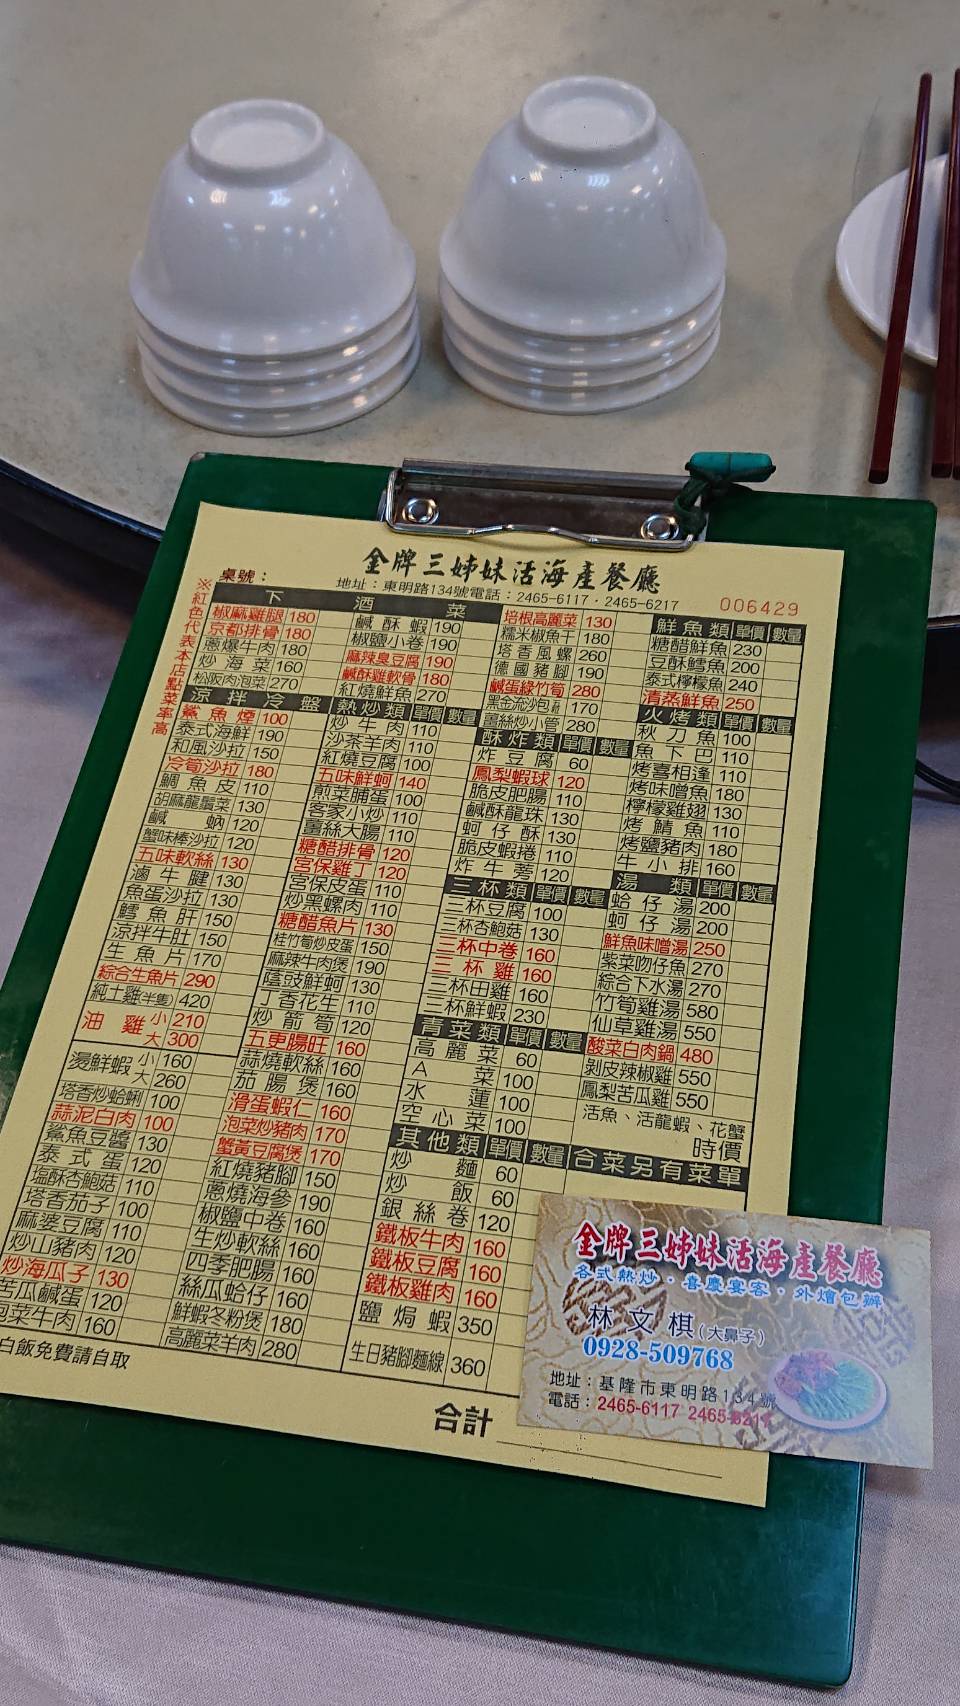 金牌三姊妹活海產餐廳
桌號：
地址：東明路134號電話：2465-6117．2465-6217
006429
※紅色代表本店點菜率高
下酒菜
椒麻雞腿 180
京都排骨 180
蔥爆牛肉 180
炒海菜 160
松阪肉泡菜 270
鹹酥蝦 190
椒鹽小卷 190
麻辣臭豆腐 190
鹹酥雞軟骨 180
紅燒鮮魚 270
培根高麗菜 130
糯米椒魚干 180
塔香風螺 260
德國豬腳 190
鹹蛋綠竹筍 280
黑金流沙包 170
薑絲炒小管 280
涼拌冷盤
鯊魚煙 100
泰式海鮮 190
和風沙拉 150
冷筍沙拉 180
鯛魚皮 110
胡麻龍鬚菜 130
鹹蚋 120
蟹味棒沙拉 120
五味軟絲 130
滷牛腱 130
魚蛋沙拉 130
鱈魚肝 150
涼拌牛肚 150
生魚片 170
綜合生魚片 290
純土雞(半隻) 420
油雞 小 210
大 300
燙鮮蝦 小 160
大 260
塔香炒蛤蜊 100
蒜泥白肉 100
鯊魚豆醬 130
泰式蛋 120
塩酥杏鮑菇 110
塔香茄子 100
麻婆豆腐 110
炒山豬肉 120
炒海瓜子 130
苦瓜鹹蛋 120
泡菜牛肉 160
白飯免費請自取
熱炒類 單價 數量
炒牛肉 110
沙茶羊肉 110
紅燒豆腐 100
五味鮮蚵 140
煎菜脯蛋 100
客家小炒 110
薑絲大腸 110
糖醋排骨 120
宮保雞丁 120
宮保皮蛋 110
炒黑螺肉 110
糖醋魚片 130
桂竹筍炒皮蛋 150
麻辣牛肉煲 190
蔭豉鮮蚵 130
丁香花生 110
炒箭筍 120
五更腸旺 160
蒜燒軟絲 160
茄腸煲 160
滑蛋蝦仁 160
泡菜炒豬肉 170
蟹黃豆腐煲 170
紅燒豬腳 150
蔥燒海參 190
椒鹽中卷 160
生炒軟絲 160
四季肥腸 160
絲瓜蛤仔 160
鮮蝦冬粉煲 180
高麗菜羊肉 280
酥炸類 單價 數量
炸豆腐 60
鳳梨蝦球 120
脆皮肥腸 110
鹹酥龍珠 130
蚵仔酥 130
脆皮蝦捲 110
炸牛蒡 120
三杯類 單價 數量
三杯豆腐 100
三杯杏鮑菇 130
三杯中卷 160
三杯雞 160
三杯田雞 160
三杯鮮蝦 230
青菜類 單價 數量
高麗菜 60
A菜 100
水蓮 100
空心菜 100
其他類 單價 數量
炒麵 60
炒飯 60
銀絲卷 120
鐵板牛肉 160
鐵板豆腐 160
鐵板雞肉 160
鹽焗蝦 350
生日豬腳麵線 360
鮮魚類 單價 數量
糖醋鮮魚 230
豆酥鱈魚 200
泰式檸檬魚 240
清蒸鮮魚 250
火烤類 單價 數量
秋刀魚 100
魚下巴 110
烤喜相逢 110
烤味噌魚 180
檸檬雞翅 130
烤鯖魚 110
烤鹽豬肉 180
牛小排 160
湯類 單價 數量
蛤仔湯 200
蚵仔湯 200
鮮魚味噌湯 250
紫菜吻仔魚 270
綜合下水湯 270
竹筍雞湯 580
仙草雞湯 550
酸菜白肉鍋 480
剝皮辣椒雞 550
鳳梨苦瓜雞 550
活魚、活龍蝦、花蟹
時價
合菜另有菜單
合計
金牌三姊妹活海產餐廳
各式熱炒．喜慶宴客．外燴包辦
林文棋(大鼻子)
0928-509768
地址：基隆市東明路134號
電話：2465-6117 2465-6217